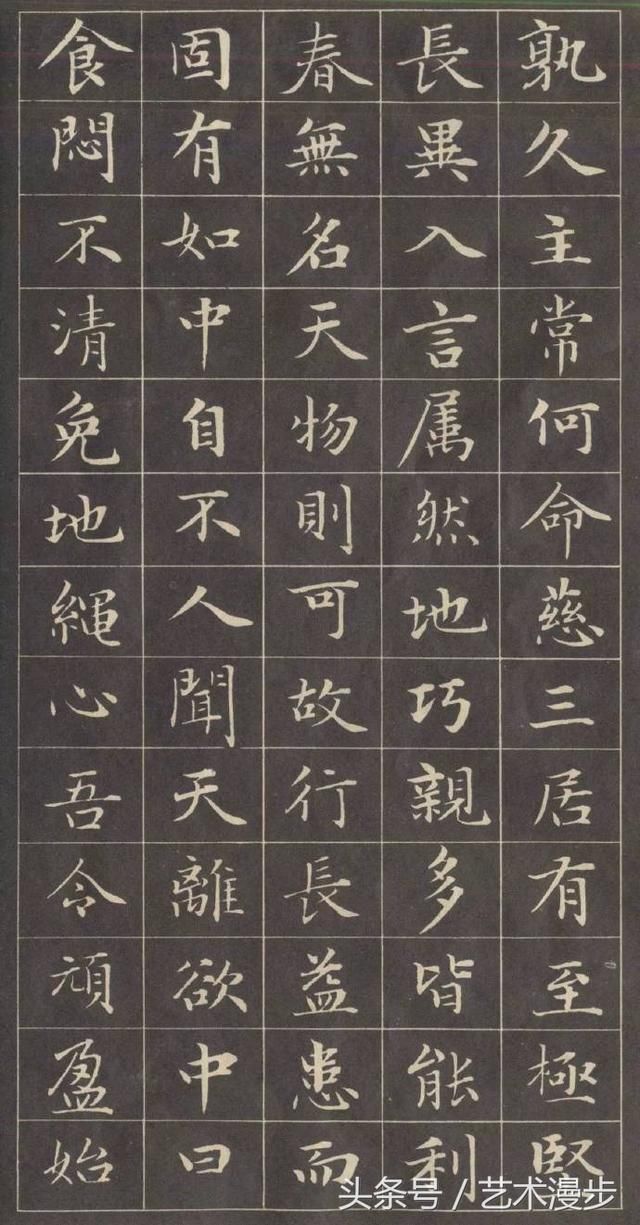 孰久主常何命慈三居有至極堅
長異入言属然地巧親多皆能利
春無名天物則可故行長益患而
固有如中自不人聞天離欲中曰
食悶不清免地繩心吾令頑盈始
头条号／艺术漫步